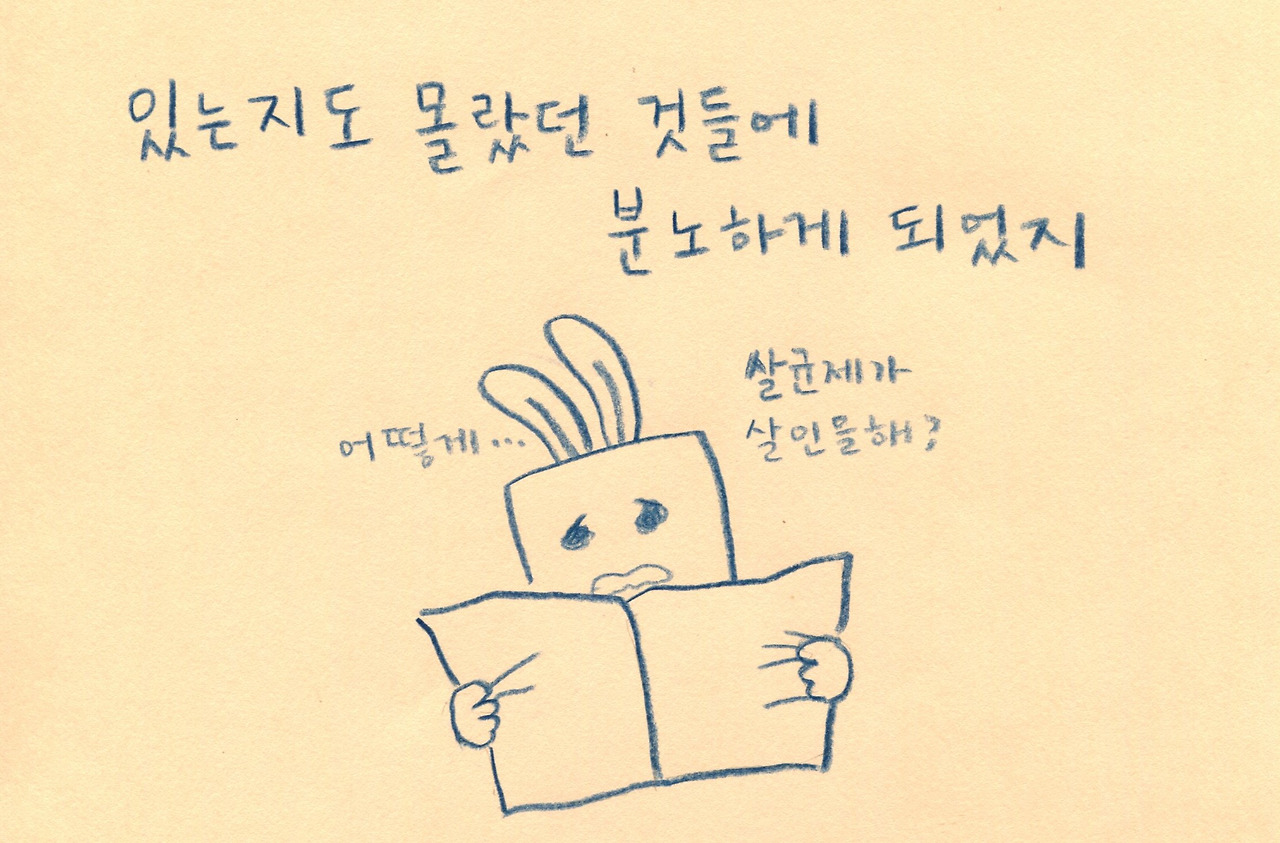 있는지도 몰랐던 것들에
분노하게 되었지
어떻게...
살균제가
살인을해?